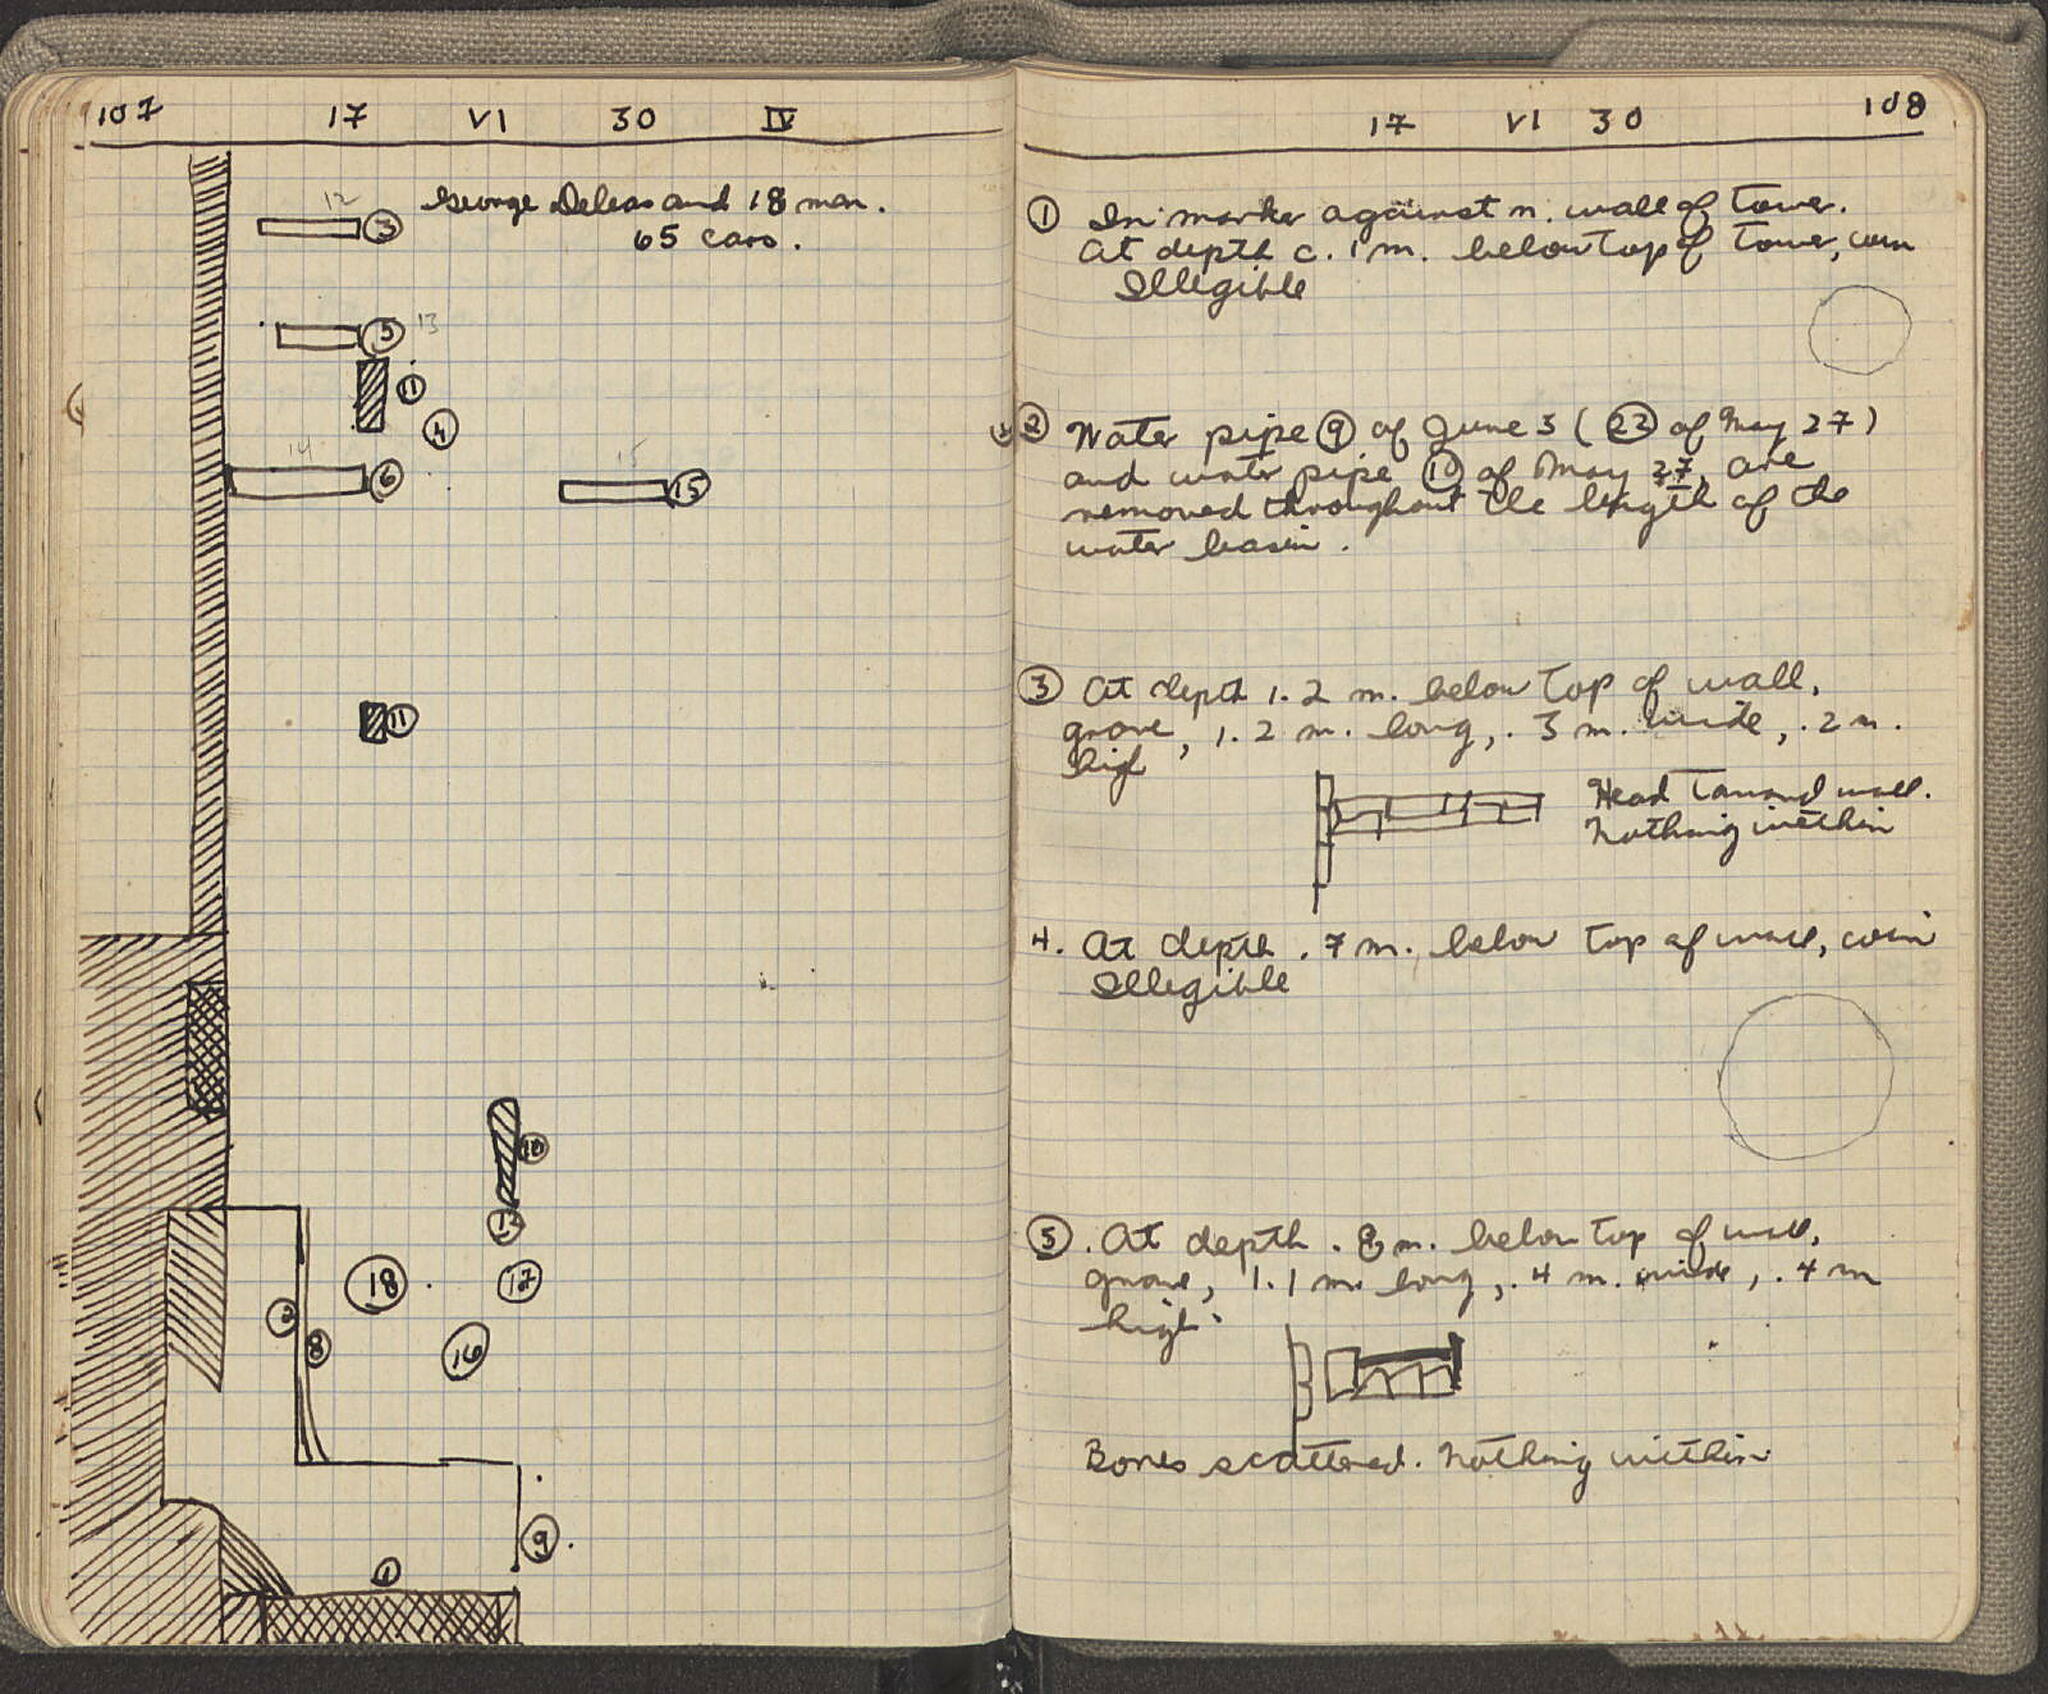 107 17 VI 30 IV
George Deleas and 18 men.
65 cars.
12
3
5
13
11
4
14
6
15
15
11
10
13
18
17
2
8
16
9
1
17 VI 30 108
1 In marker against n. wall of tower.
At depth c. 1 m. below top of tower, coin
Illegible
2 Water pipe 9 of June 3 (22 of May 27)
and water pipe 10 of May 27, are
removed throughout the length of the
water basin.
3 At depth 1.2 m. below top of wall,
grave, 1.2 m. long, .3 m. wide, .2 m.
high
Head toward wall.
Nothing within
4. At depth .7 m. below top of wall, coin
Illegible
5. At depth .8 m. below top of wall,
grave, 1.1 m. long, .4 m. wide, .4 m
high.
Bones scattered. Nothing within